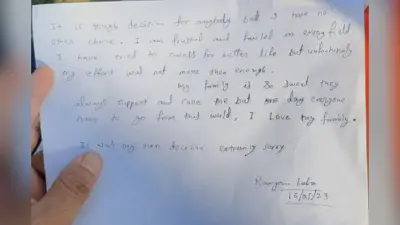 It is tough decision for anybody but I hope no
choice. I am frusted and failed in every field
I have tried to for better life but unfortunately
my effort was not more than enough.
My family is so sweet they
always support and care me but one day everyone
have to go from this world, I Love my family.
Is not my own decision extremely sorry